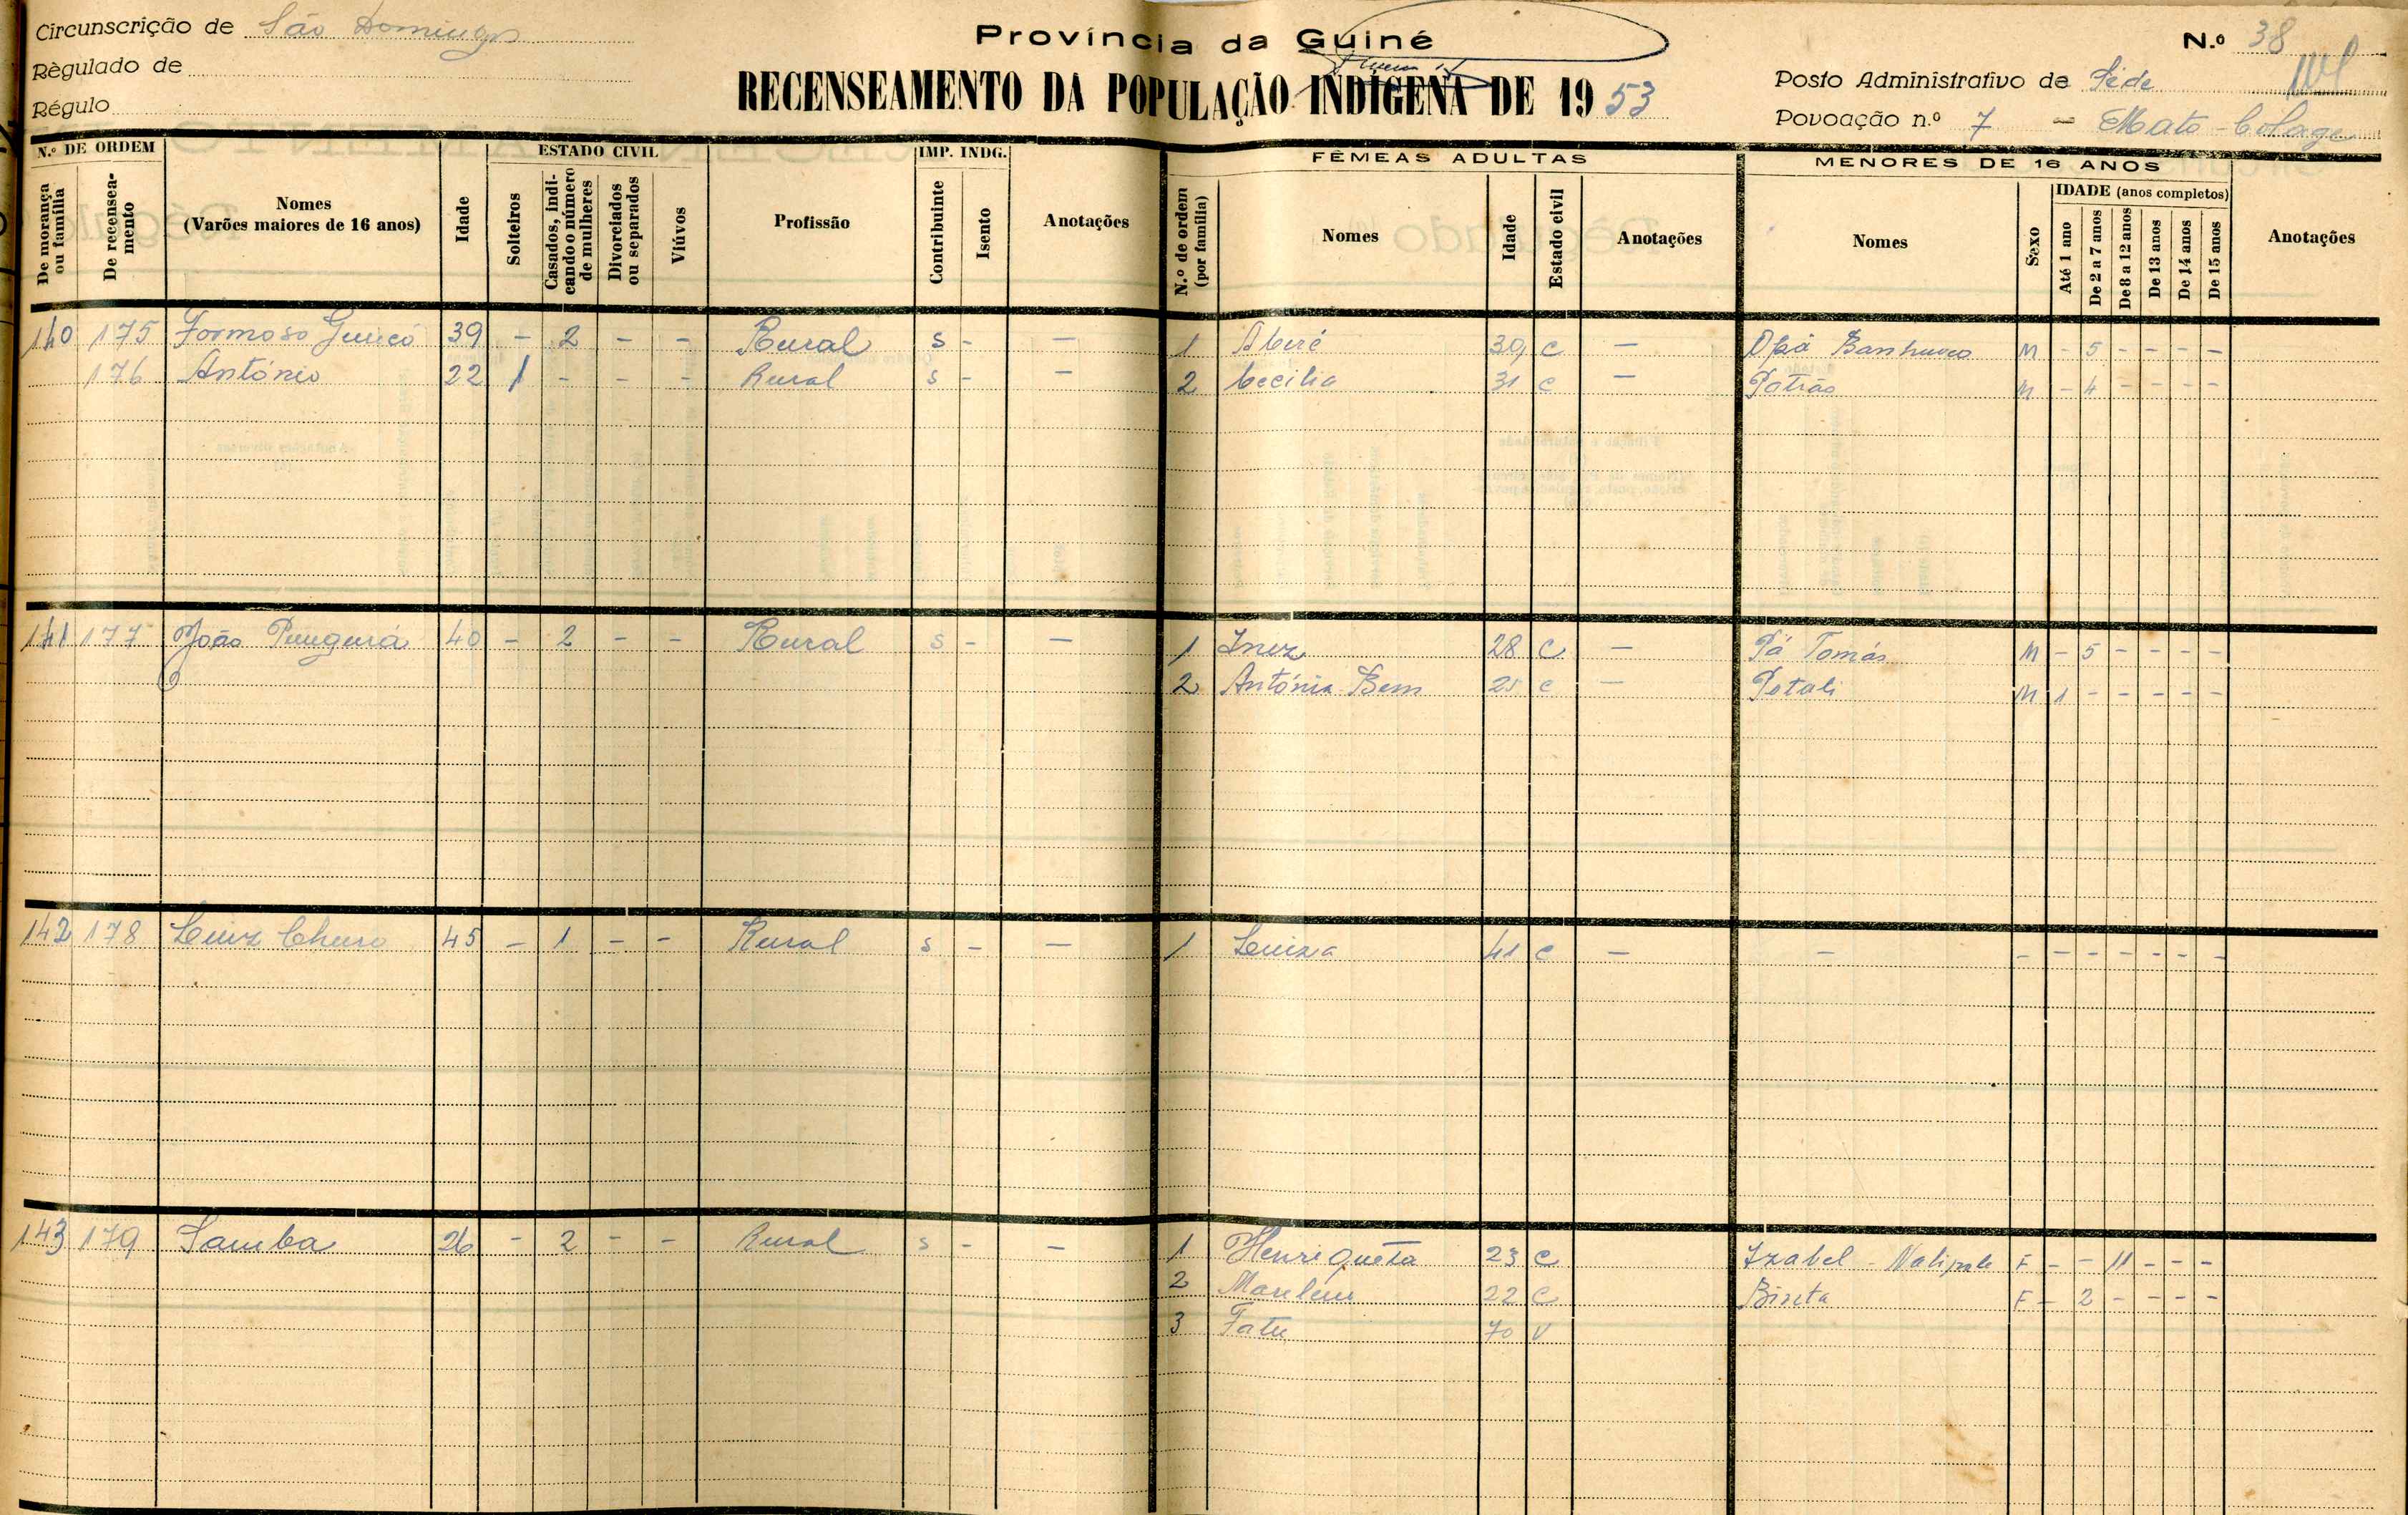 Circunscrição de São Domingos
Règulado de
Régulo
Província da Guiné
RECENSEAMENTO DA POPULAÇÃO INDÍGENA DE 1953
N.º 38
Posto Administrativo de Séde
Povoação n.º 7 - Mato
N.º DE ORDEM
De morança ou família
De recenseamento
Nomes
(Varões maiores de 16 anos)
Idade
ESTADO CIVIL
Solteiros
Casados, indicando o número de mulheres
Divorciados ou separados
Viúvos
Profissão
IMP. INDG.
Contribuinte
Isento
Anotações
FÊMEAS ADULTAS
N.º de ordem (por família)
Nomes
Idade
Estado civil
Anotações
MENORES DE 16 ANOS
Nomes
Sexo
IDADE (anos completos)
Até 1 ano
De 2 a 7 anos
De 8 a 12 anos
De 13 anos
De 14 anos
De 15 anos
Anotações
140 175 Formoso 39 - 2 - - Rural S - - 1 30 C - M - 5 - - - -
176 António 22 1 - - - Rural S - - 2 Cecilia 31 C - Patrão M - 4 - - - -
141 177 João 40 - 2 - - Rural S - - 1 Inez 28 C - Pá Tomás M - 5 - - - -
2 António Bem 25 C - Potali M 1 - - - - -
142 178 Luiz 45 - 1 - - Rural S - - 1 Luiza 41 C - - - - - - - - -
143 179 Samba 26 - 2 - - Rural S - - 1 Henriqueta 23 C Izabel - F - - 11 - - -
2 22 C Bineta F - 2 - - - -
3 Fatu 70 V